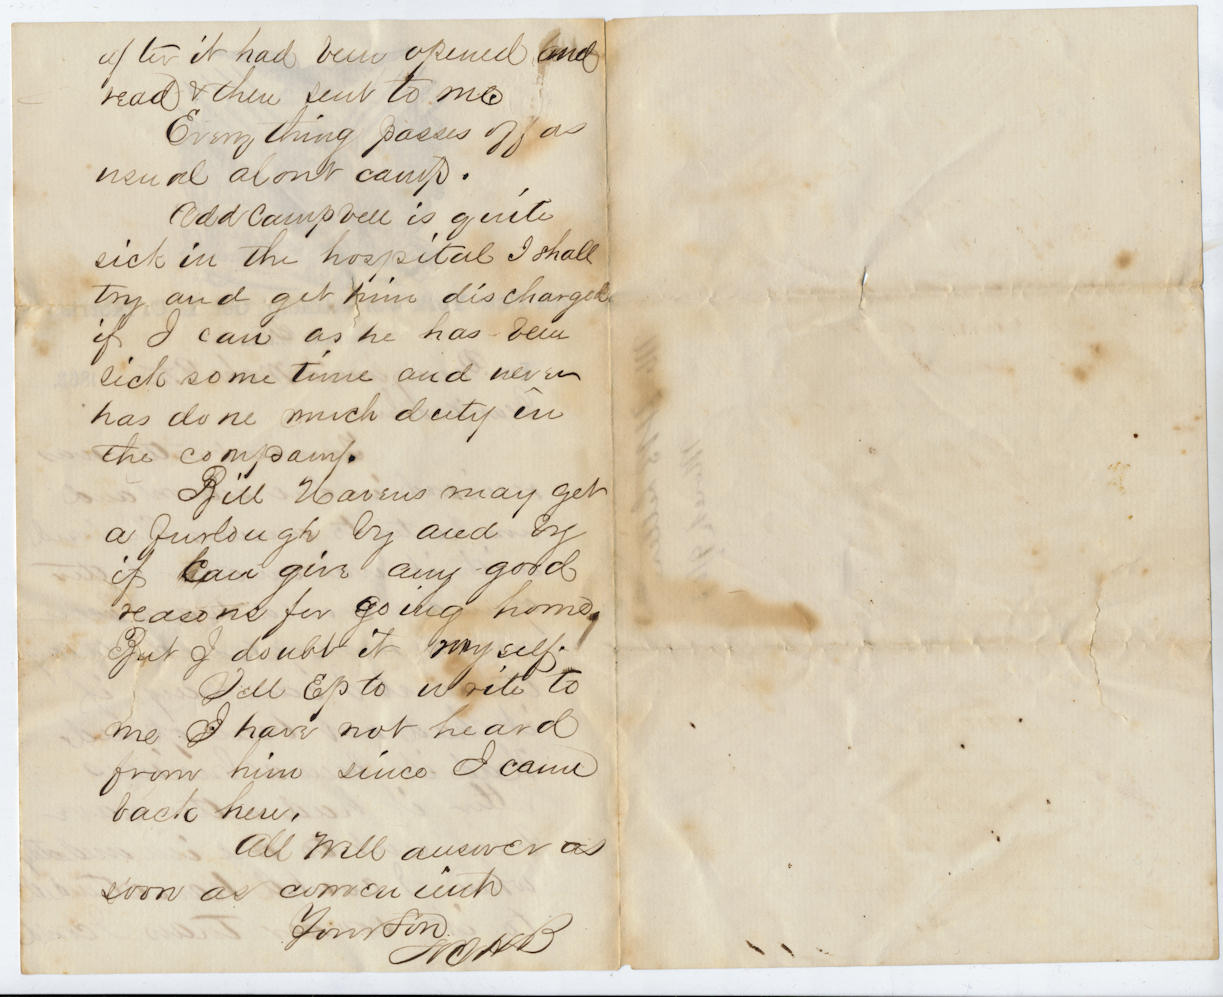 after it had been opened and
read & then sent to me
Everything passes off as
usual about camp.
Add Campbell is quite
sick in the hospital I shall
try and get him discharged
if I can as he has been
sick some time and never
has done much duty in
the company.
Bill Havens may get
a furlough by and by
if can give any good
reasons for going home,
But I doubt it myself.
Tell Ep to write to
me I have not heard
from him since I came
back here.
All Well answer as
soon as convenient
Your Son